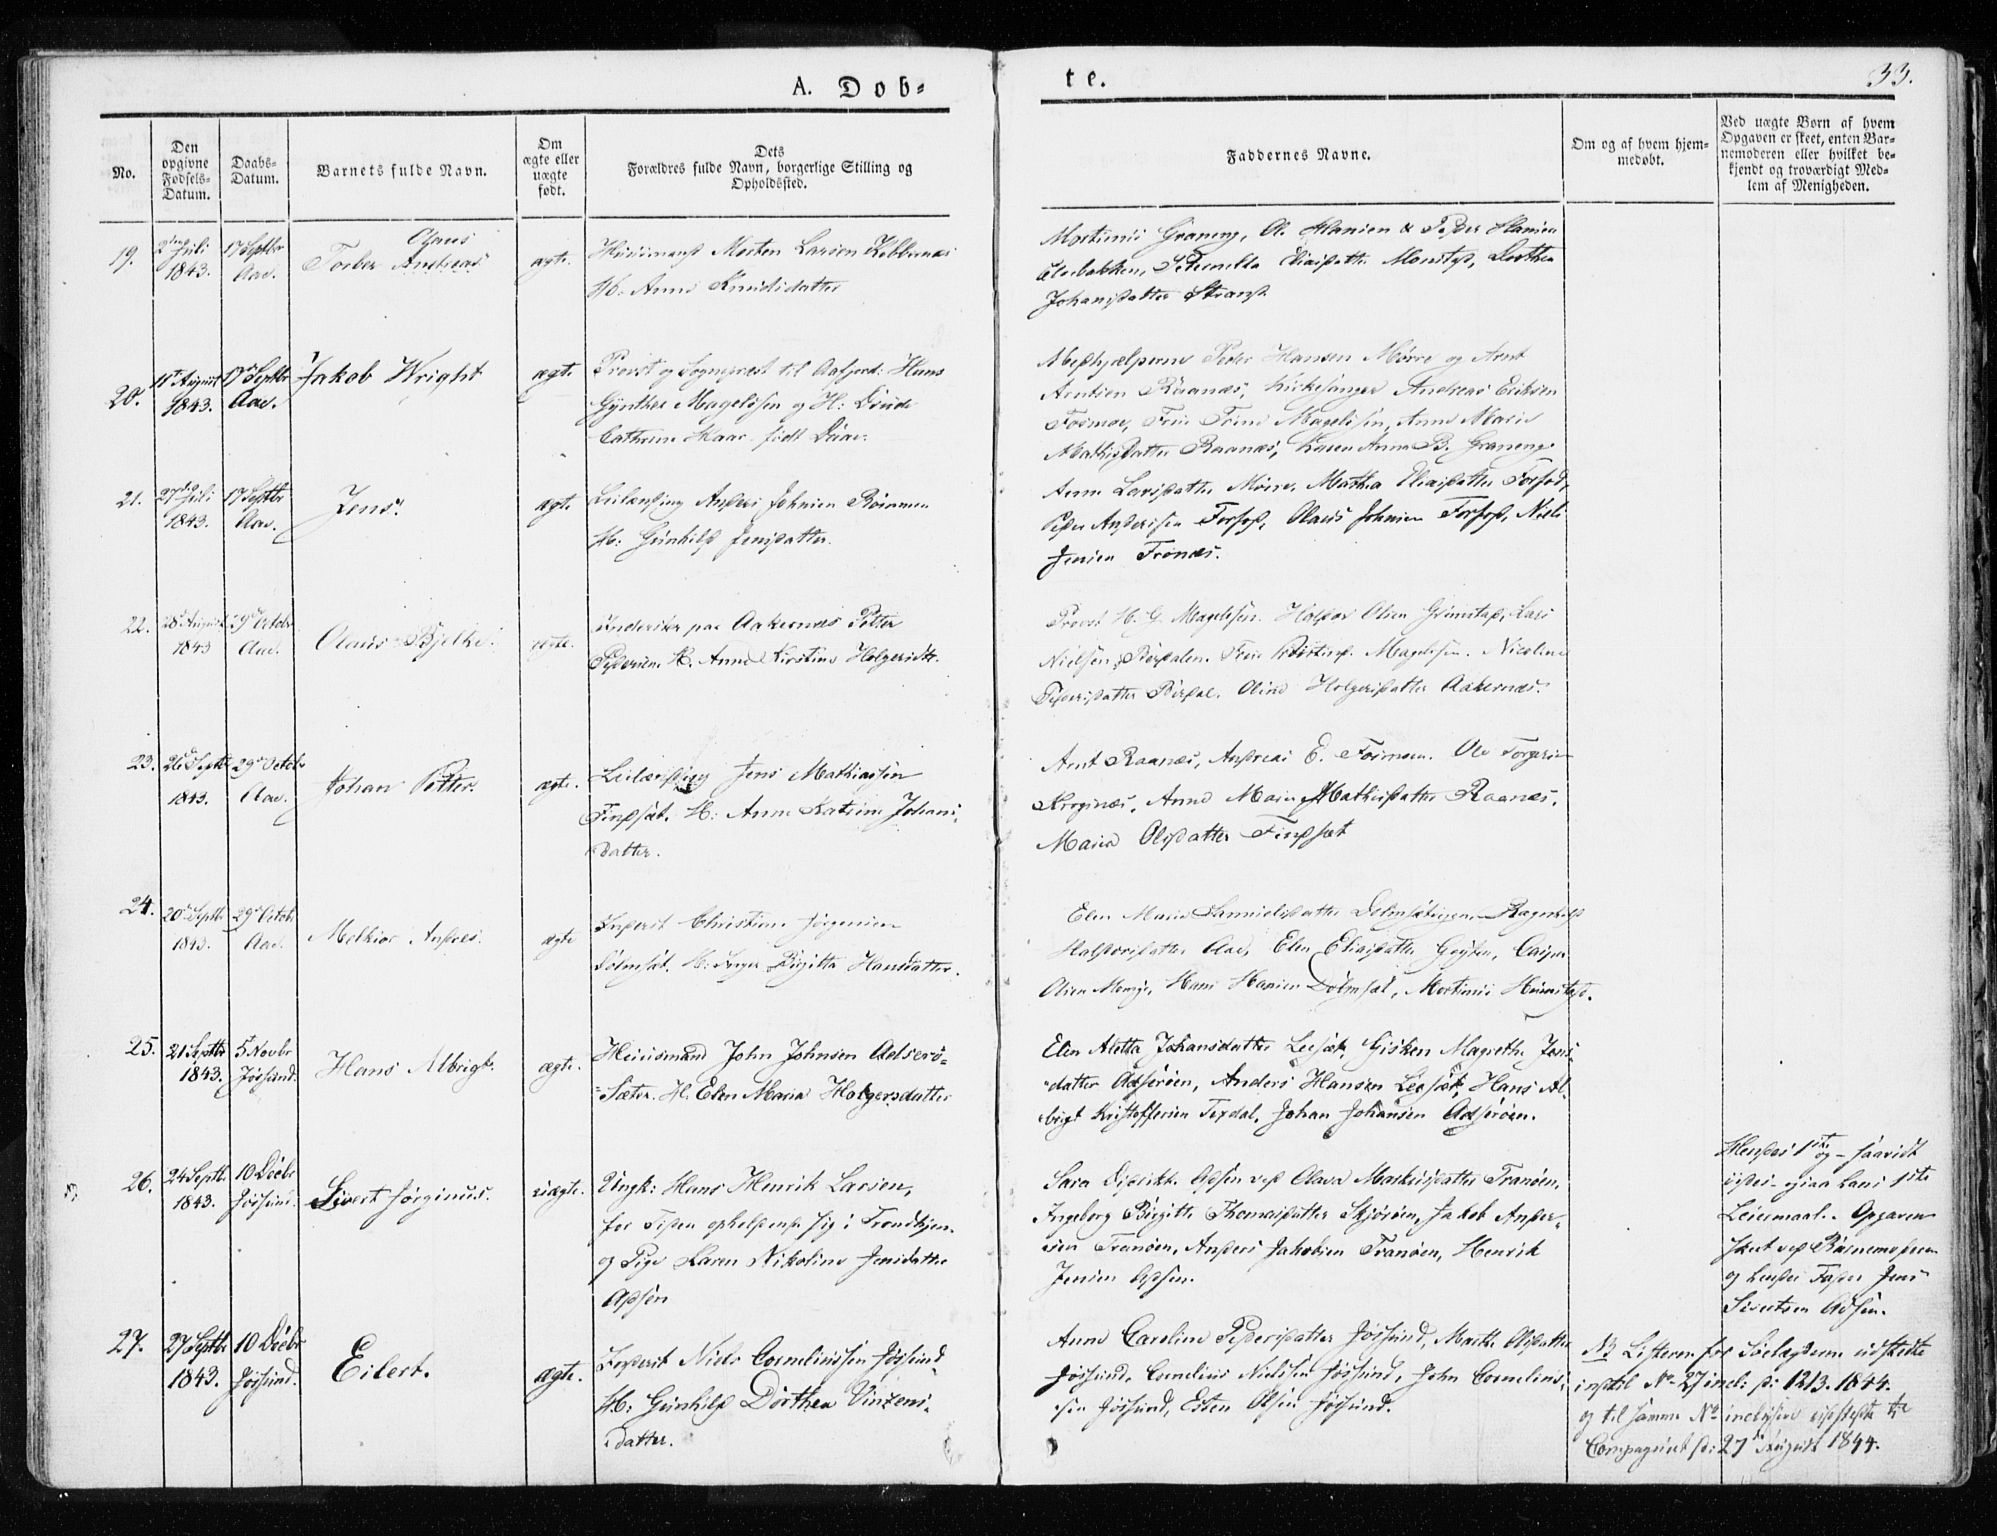 A. Døb-
te.
33.
No.
Den opgivne Fødsels-Datum.
Daabs-Datum.
Barnets fulde Navn.
Om ægte eller uægte født.
Dets Forældres fulde Navn, borgerlige Stilling og Opholdssted.
Faddernes Navne.
Om og af hvem hjem-medøbt.
Ved uægte Børn af hvem Opgaven er skeet, enten Bar-nemoderen eller hvilket be-kjendt og troværdigt Med-lem af Menigheden.
19.
Juli 1843.
17 Septbr Aae.
Andreas
ægte.
Huusmand Morten Larsen
H: Anne Knudsdatter
Graneng, O. Hansen & Peder Hansen
Peternella Eliasdatter, Dorthea
Johansdatter Strand
20.
11t August 1843.
17de Septbr Aae.
Jakob Wright
ægte
Provst og Sognepræst til Aafjord: Hans
Gynther Magelssen og H: Drude
Cathrine Haar født Daae.
Medhjælperne Peder Hansen Mørre og Arnt
Arntsen Raanæs, Kirkesanger Andreas Eriksen
Fosmoe, Frue Trine Magelssen, Anne Marie
Mathisdatter Raanæs, Karen Anna B. Graneng
21.
27de Juli 1843.
17 Septbr Aae.
Jens.
ægte
Leilænding Anders Johnsen
H: Gunhild Jensdatter.
Anne Larsdatter Mørre, Mathea Eliasdatter Forfod,
Peder Andersen, Olaus Johnsen, Niels
Jensen Fronæs.
22.
28de August 1843
29de Octobr Aae.
Olaus Bjelke.
ægte.
Inderster paa Aakernæs Petter
Pedersen. H. Anne Kirstine Holgersdtr.
Provst H. G. Magelssen. Halvor Olsen Grimstad, Lars
Nielsen. Frue Magelssen. Nicoline
Pedersdatter. Oline Holgersdatter Aakernæs.
23.
26de Septbr 1843.
29de Octobr Aae.
Johan Petter.
ægte.
Leilænding Jens Mathiassen
Findsæt. H: Anne Katrine Johans-
datter.
Arnt Raanæs, Andreas E. Fosmoen. Ole Torgersen
Krognæs, Anne Marie Mathisdatter Raanæs.
Maria Olsdatter Findsæt
24.
20de Septbr 1843.
29de Octobr Aae.
Melkior Andreas.
ægte
Inderst Christian Jørgensen
Dolmsæt. H: Inger Birgitta Hansdatter.
Elen Maria Danielsdatter, Ragnhild
Halvorsdatter Aae, Elen Eliasdatter
Olsen, Hans Hansen Dolmsæt, Mortinus
25.
21 Septbr 1843.
5te Novbr Jøssund.
Hans Albrigt.
ægte.
Huusmand John Johnsen Adserø-
Sæter. H. Elen Maria Holgersdatter
Elen Aletta Johansdatter Leesæt. Gisken Magrethe Jens
datter Adserøen, Anders Hansen Leesæt, Hans Al-
brigt Kristoffersen Texdal, Johan Johansen Adserøen.
26.
24 Septbr 1843.
10 Decbr Jøssund.
Sivert Jørginus.
uægte.
Ungk: Hans Henrik Larsen,
for Tiden opholdende sig i Trondhjem
og Pige Karen Nikoline Jensdatter
Adsøn
Sara Adsøn ved Olava Markusdatter Tranøen,
Ingeborg Birgitte Thomasdatter Skjørøen, Jakob Ander-
sen Tranøen, Anders Jakobsen Tranøen, Henrik
Jensen Adsøn.
Hendes 1ste og - saavidt
vides - ogsaa hans 1ste
Leiermaal. Opgaven
skeet ved Barnemoderen
og hendes Fader Jens
Sivertsen Adsøn.
27.
27 Septbr 1843.
10 Decbr Jøssund.
Eilert.
ægte.
Inderst Niels Corneliussen Jøssund.
H: Gunhild Dorthea Vinzens-
datter.
Anne Caroline Pedersdatter Jøssund, Marthe Olsdatter
Jøssund, Cornelius Nielsen Jøssund, John Cornelius-
sen Jøssund, Esten Olsen Jøssund.
NB Listerne for Sølægderne udstedte
indtil No 27 incl: d: 12/3. 1844.
og til samme No inclusive udstedt til
Compagniet d: 27de August 1844.